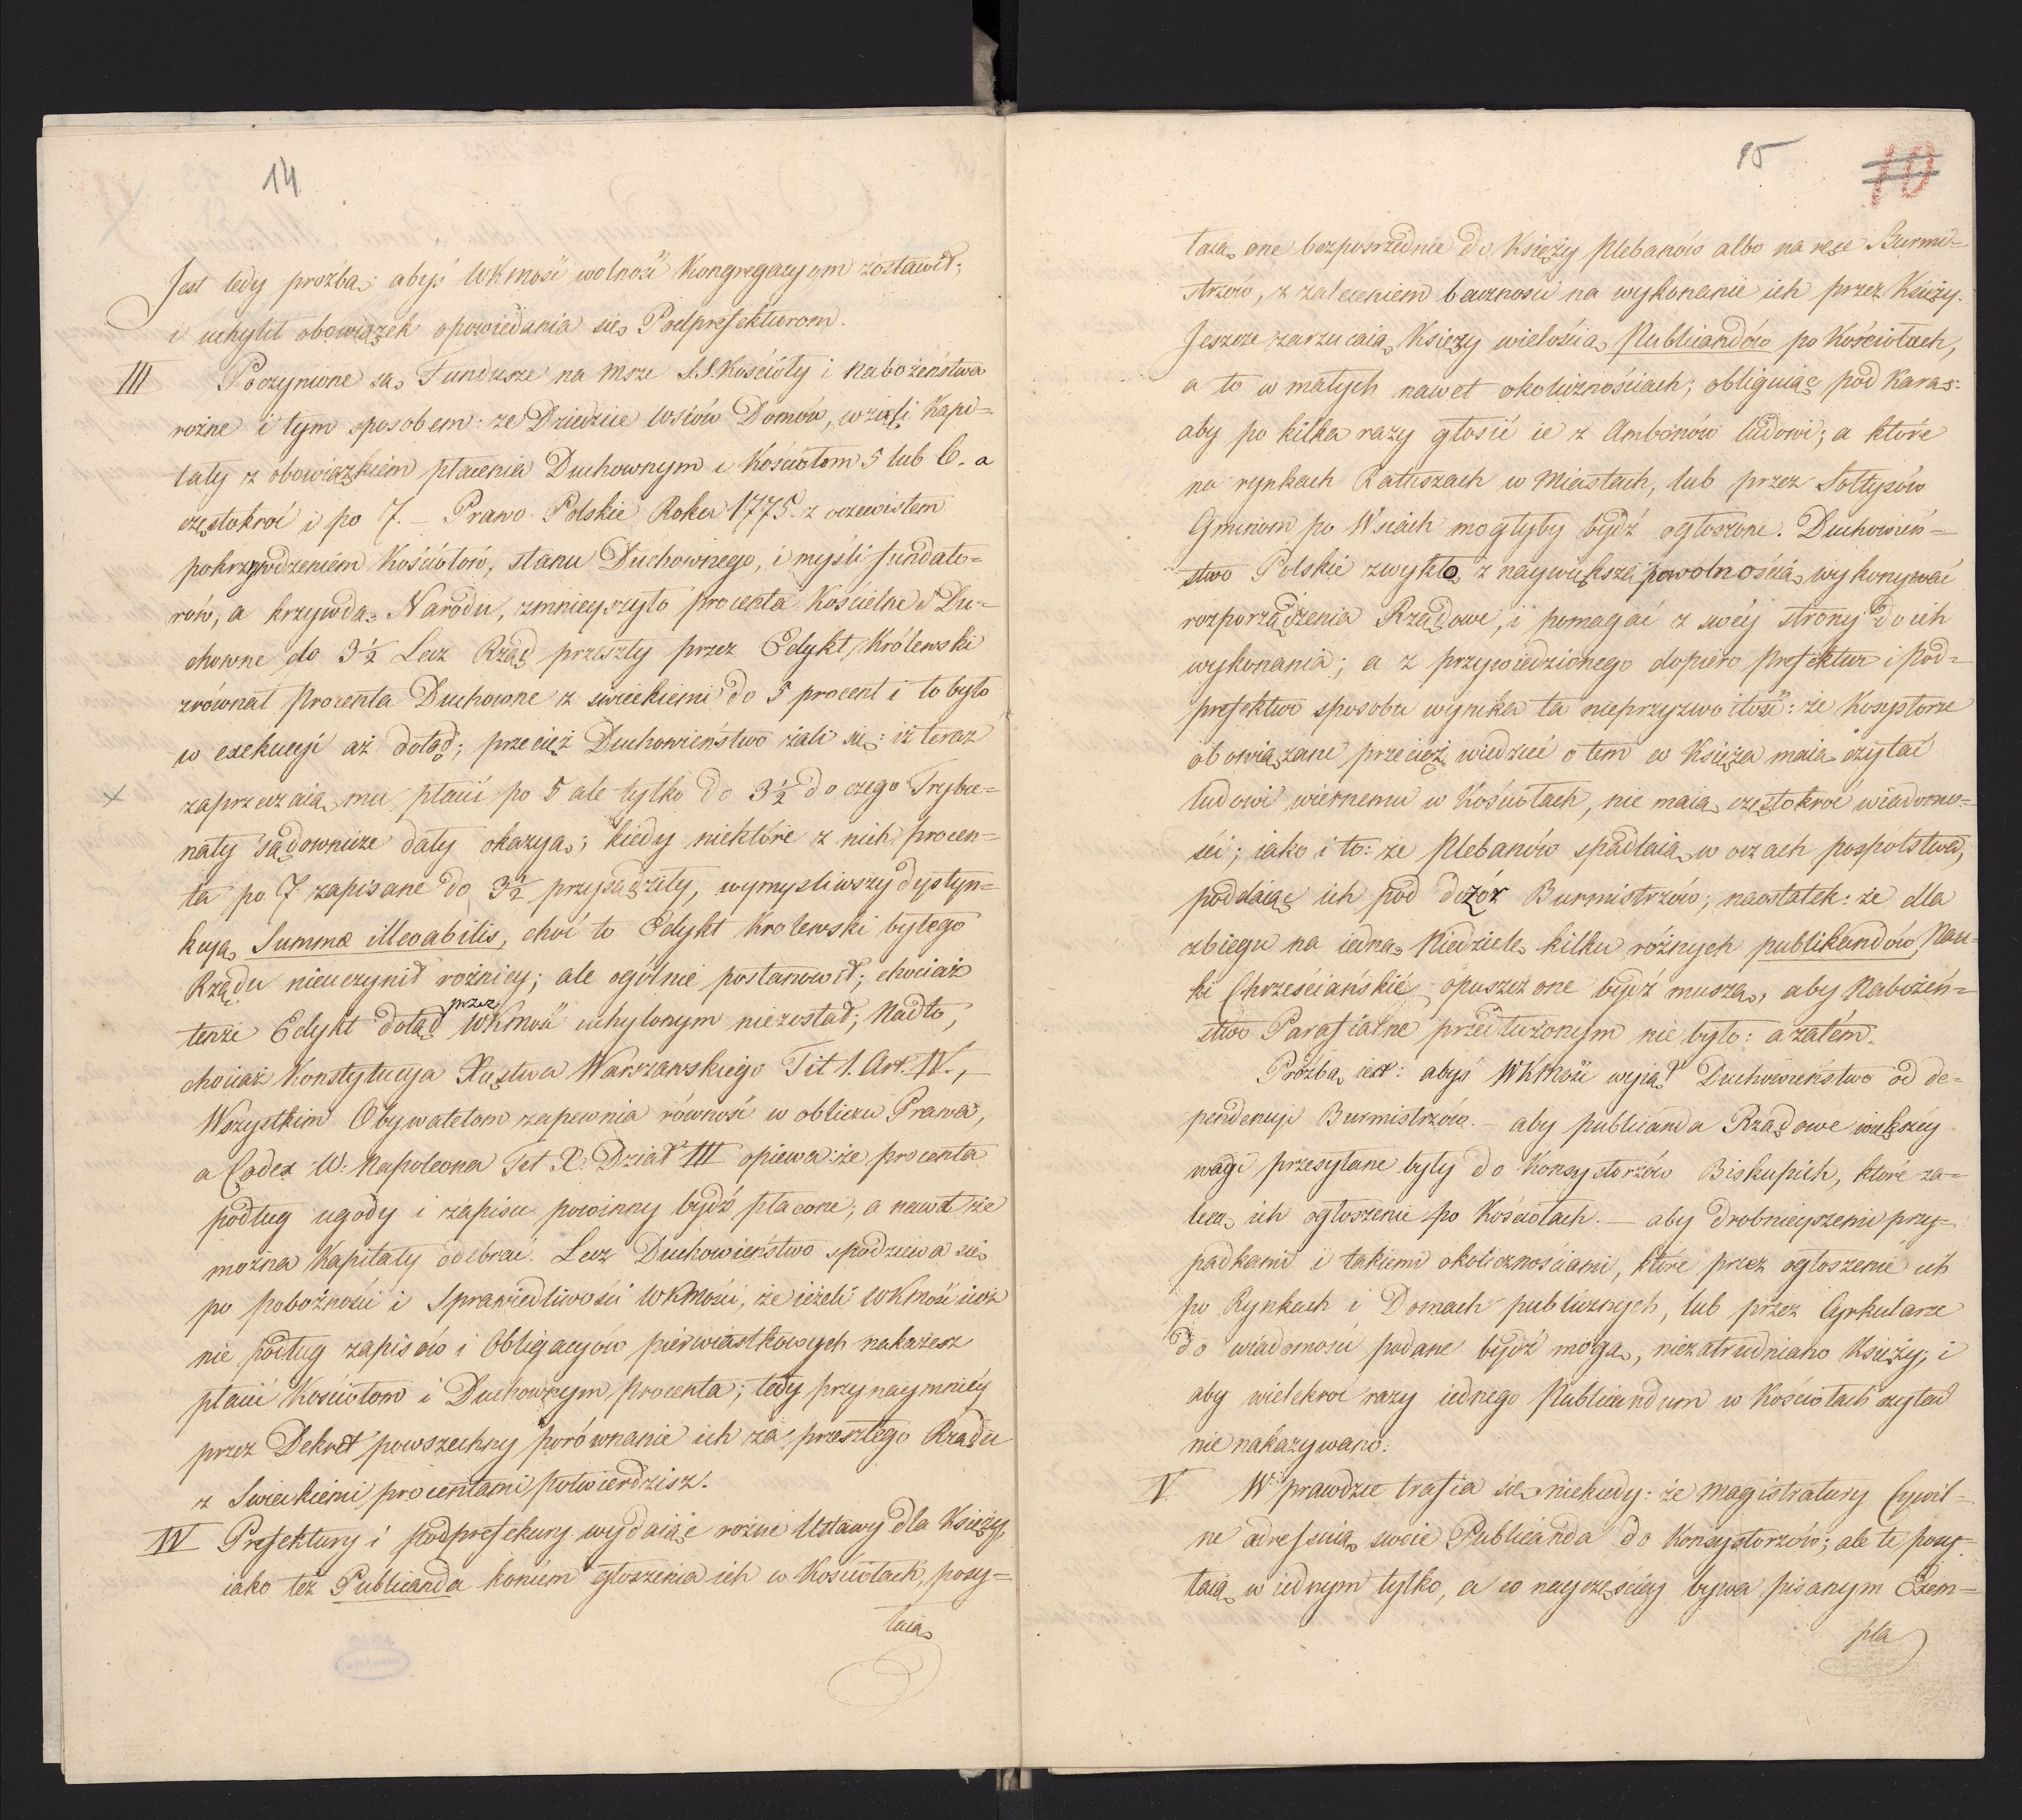 14
Jest tedy prożba: abyś WKMość wolność Kongregacyom zostawił;
i uchylił obowiązek opowiedania się Podprefekturom.
III Poczynione są Fundusze na Msze S.S. Kościoły i nabożeństwa
rożne i tym sposobem: że Dziedzice Wsiów Domów, wzięli Kapi=
tały z obowiązkiem płacenia Duchownym i Kościołom 5 lub 6. a
częstokroć i po 7. — Prawo Polskie Roku 1775. z oczewistem
pokrzywdzeniem Kościołów, stanu Duchownego, i myśli fundato=
rów, a krzywdą Narodu, zmnieyszyło procenta Kościelne i Du=
chowne do 3½ Lecz Rząd przeszły przez Edykt Królewski
zrównał Procenta Duchowne z swieckiemi do 5 procent i to było
w exekucyi aż dotąd; przecięż Duchowieństwo żali się: iż teraz
zaprzeczaią mu płacić po 5 ale tylko do 3½ do czego Trybu=
nały sądownicze dały okazyą; kiedy niektóre z nich procen=
ta po 7 zapisane do 3½ przysądziły, wymysliwszy dystyn=
kcyą Summæ illevabilis, choć to Edykt Krolewski byłego
Rządu nieuczynił rożnicy; ale ogólnie postanowił; chociaż
tenże Edykt dotąd przez WKMość uchylonym niezostał; Nadto,
chociaż Konstytucya Xięstwa Warszawskiego Tit 1. Art. IV., —
Wszystkim Obywatelom zapewnia równość w obliczu Prawa,
a Codex W: Napoleona Tet X. Dział III opiewa: że procenta
podług ugody i zapisu powinny bydź płacone, a nawet że
można Kapitały odebrać. Lecz Duchowieństwo spodziewa się
po pobożności i Sprawiedliwości WKMości, że ieżeli WKMość iuż
nie podług zapisów i Obligacyów pierwiastkowych nakażesz
płacić Kościołom i Duchownym Procenta; tedy przynaymniéy
przez Dekret powszechny porównanie ich za przeszłego Rządu
z Swieckiemi procentami potwierdzisz.
IV Prefektury i podprefekury wydaiąc rożne Ustawy dla Księży,
iako też Publicanda koniem głoszenia ich w Kościołach, posy=
łaią
15 10
łaią one bezpośrzednie do Księży Plebanów albo na ręce Burmi=
strzów, z zaleceniem baczności na wykonanie ich przez Księży.
Jeszcze zarzucaią Księży wielością Publicandów po Kościołach,
a to w małych nawet okolicznościach; obliguiąc pod karą:
aby po kilka razy głosić ie z Ambonów ludowi; a które
na rynkach Ratuszach w Miastach, lub przez Sołtysów
Gminom po Wsiach mogłyby bydź ogłoszone. Duchowień=
stwo Polskie zwykło z naywiększą powolnością wykonywać
rozporządzenia Rządowe, i pomagać z swéy strony do ich
wykonania; a z przywiedzionego dopiero Prefektur i Pod=
prefektur sposobu wynika ta nieprzyzwoitość: że Konsystorze
obowiązane przecięż wiedzieć o tem co Księża maią czytać
ludowi wiernemu w Kościołach, nie maią częstokroć wiadomo=
ści; iako i to: że Plebanów spadlaią w oczach pospolstwa,
poddaiąc ich pod dozór Burmistrzów; naostatek: że dla
zbiegu na iedną Niedzielę kilku różnych publikandów, Nau=
ki Chrześciańskie opuszczone bydź muszą, aby Nabożeń=
stwo Parafialne przedłużonym nie było: a zatém.
Prożba iest: abyś WKMość wyiął Duchowieństwo od de=
pendencyi Burmistrzów. — aby publicanda Rządowe większéy
wagi przesyłane były do Konsystorzów Biskupich, które za=
lecą ich ogłoszenie po Kościołach. — aby drobnieyszemi przy=
padkami i takiemi okolicznościami, które przez ogłoszenie ich
po Rynkach i Domach publicznych, lub przez Cyrkularze
do wiadomości podane bydź mogą, niezatrudniano Księży; i
aby wielekroć razy iednego Publicandum w Kościołach czytać
nie nakazywano.
V. W prawdzie trafia się niekiedy: że Magistratury Cywil=
ne adressuią swoie Publicanda do Konsystorzów; ale te posy=
łaią w iednym tylko, a co nayczęściéy bywa pisanym Exem=
pla